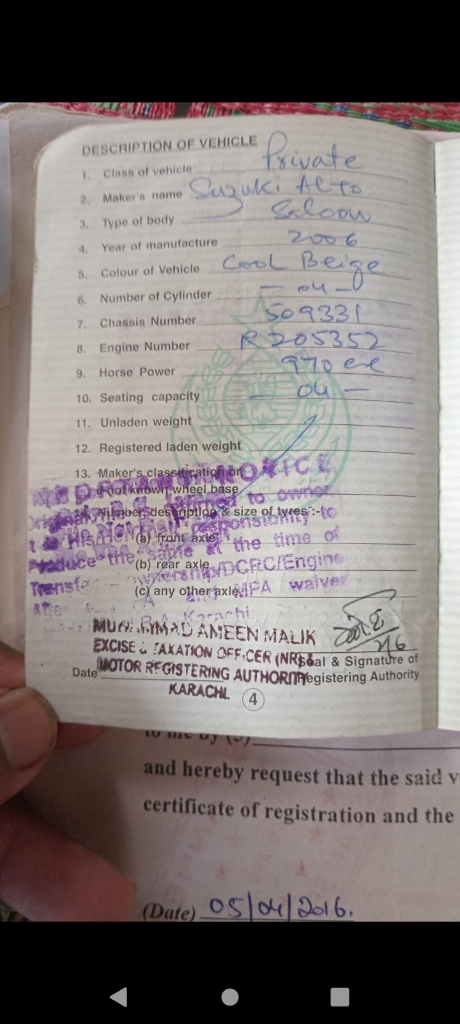 DESCRIPTION OF VEHICLE
1. Class of vehicle Private
2. Maker's name Suzuki Alto
3. Type of body Saloon
4. Year of manufacture 2006
5. Colour of Vehicle Cool Beige
6. Number of Cylinder - 04 -
7. Chassis Number 509331
8. Engine Number R205352
9. Horse Power 970 cc
10. Seating capacity - 04 -
11. Unladen weight
12. Registered laden weight
13. Maker's classification or
if not known wheel base
Number, description & size of tyres :-
(a) front axle
(b) rear axle
(c) any other axle
to owner
responsibility to
Produce the same at the time of
ownership/DCRC/Engine
MPA waiver
Karachi
MUHAMMAD AMEEN MALIK
EXCISE & TAXATION OFFICER (NR)
Seal & Signature of
MOTOR REGISTERING AUTHORITY
Date
Registering Authority
KARACHI
4
to me by (3)
and hereby request that the said v
certificate of registration and the
(Date) 05/04/2016.